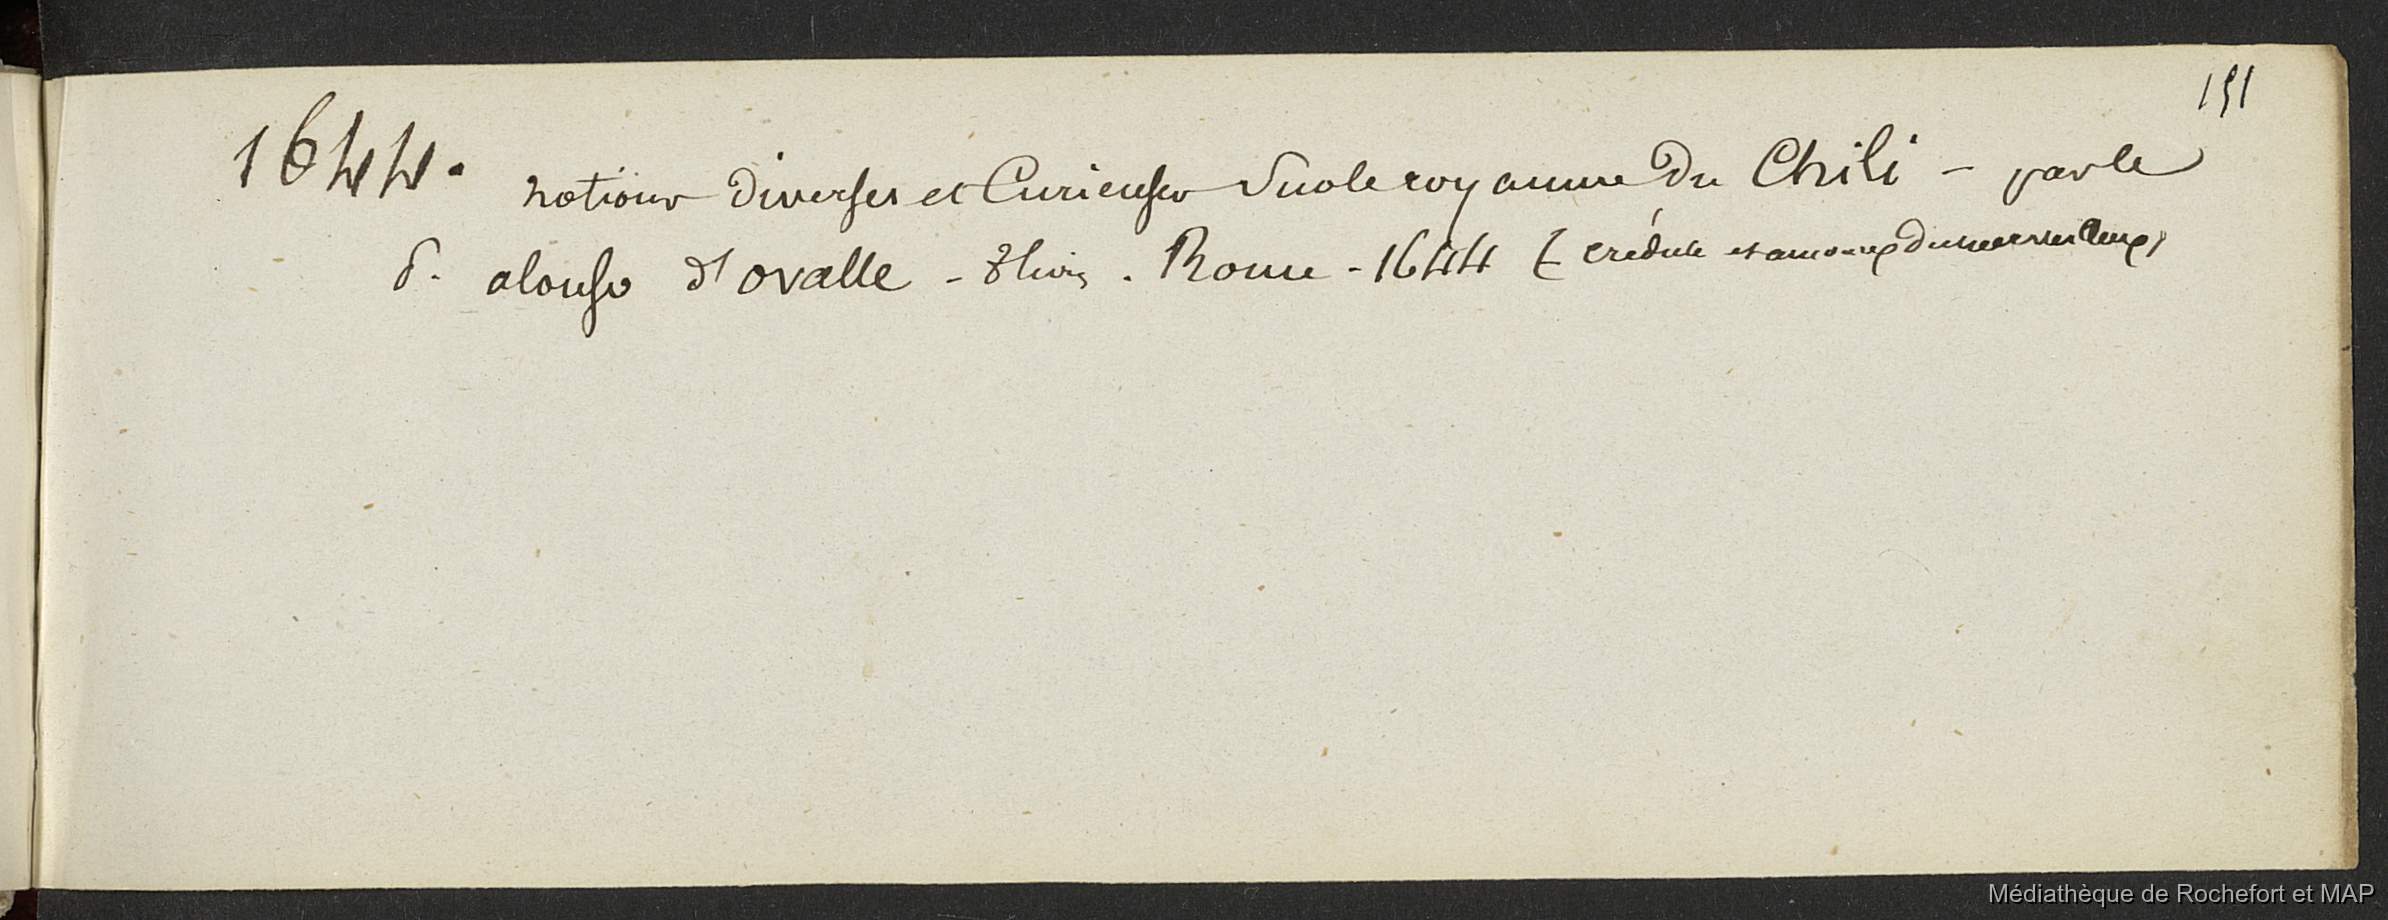 151
1644. notions diverses et Curieuses Sur le royaume Du Chili - par le
P. alonso d'ovalle - 8 livres . Rome - 1644 ( crédule et amoureux du merveilleux)
Médiathèque de Rochefort et MAP